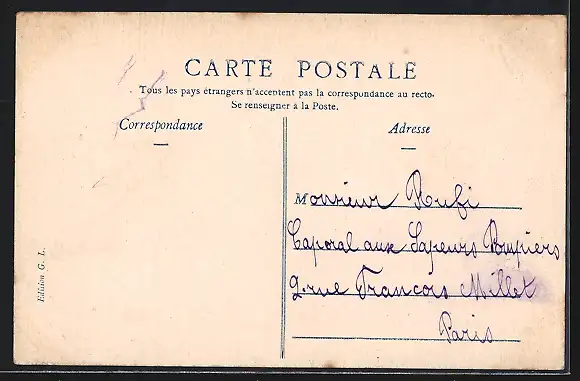 CARTE POSTALE
Tous les pays étrangers n'acceptent pas la correspondance au recto.
Se renseigner à la Poste.
Correspondance
Adresse
Monsieur Rufi
Caporal aux Sapeurs Pompiers
9 rue Francois Millet
Paris
Edition G. L.